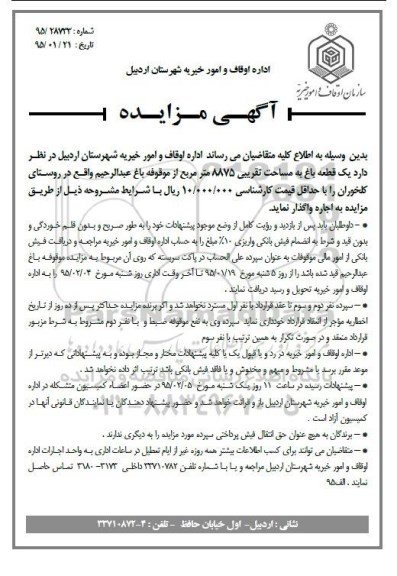 شماره : ۹۵/۲۸۷۳۳
تاریخ : ۹۵/۰۱/۲۱
سازمان اوقاف و امور خیریه
اداره اوقاف و امور خیریه شهرستان اردبیل
آگهـی مـزایـده
بدین وسیله به اطلاع کلیه متقاضیان می رساند اداره اوقاف و امور خیریه شهرستان اردبیل در نظـر
دارد یک قطعه باغ به مساحت تقریبی ۸۸۷۵ متر مربع از موقوفه باغ عبدالرحیم واقـع در روستـای
کلخوران را با حداقل قیمت کارشناسی ۱۰/۰۰۰/۰۰۰ ریال بـا شـرایط مشـروحه ذیـل از طریـق
مزایده به اجاره واگذار نماید.
– داوطلبان باید پس از بازدید و رؤیت کامل از وضع موجود پیشنهادات خود را به طور صریح و بـدون قلـم خـوردگی و
بدون قید و شرط به انضمام فیش بانکی واریزی ۱۰٪ مبلغ را به حساب اداره اوقاف و امور خیریه مراجعـه و دریافـت فـیش
بانکی از امور مالی موقوفات به عنوان سپرده علی الحساب در پاکت سربسته که روی آن مربـوط بـه مزایـده موقوفـه بـاغ
عبدالرحیم قید شده باشد را از روز ۵ شنبه مورخ ۹۵/۰۱/۱۹ تا آخر وقت اداری روز شنبه مـورخ ۹۵/۰۲/۰۴ را بـه اداره
اوقاف و امور خیریه تحویل و رسید دریافت نمایند .
– سپرده نفر دوم و سوم تا عقد قرارداد با نفر اول مسترد نخواهد شد و اگر برنده مزایـده حـداکثر پـس از ده روز از تاریخ
اخطاریه مؤجر از انعقاد قرارداد خودداری نماید سپرده وی به نفع موقوفه ضبـط و بـا نفـر دوم مشـروط بـه شـرط مزبور
قرارداد منعقد و در صورت تکرار به همین ترتیب با نفر سوم
– اداره اوقاف و امور خیریه در رد و یا قبول یک یا کلیه پیشنهادات مختار و مجـاز بـوده و بـه پیشنهاداتی کـه دیرتـر از
موعد مقرر برسد یا مشروط و مبهم و مخدوش و یا فاقد فیش بانکی باشد ترتیب اثر داده نخواهد شد .
– پیشنهادات رسیده در ساعت ۱۱ روز یـک شنبه مـورخ ۹۵/۰۲/۰۵ در حضور اعضـاء کمیسیون متشـکله در اداره
اوقاف و امور خیریه شهرستان اردبیل باز و قرائت خواهد شـد و حضـور پیشـنهاد دهنـدگان یـا نماینـدگان قـانونی آنهـا در
کمیسیون آزاد است .
– برندگان به هیچ عنوان حق انتقال فیش پرداختی سپرده مورد مزایده را به دیگری ندارند .
– متقاضیان می توانند برای کسب اطلاعات بیشتر همه روزه غیر از ایام تعطیل در ساعات اداری بـه واحـد اجـارات اداره
اوقاف و امور خیریه شهرستان اردبیل مراجعه و یـا بـا شـماره تلفـن ۳۳۷۱۰۷۸۲ داخلـی ۳۱۷۳– ۳۱۸۰ تمـاس حاصـل
نمایند . الف۹۵
نشانی : اردبیل- اول خیابان حافظ - تلفن : ۴-۳۳۷۱۰۸۷۲